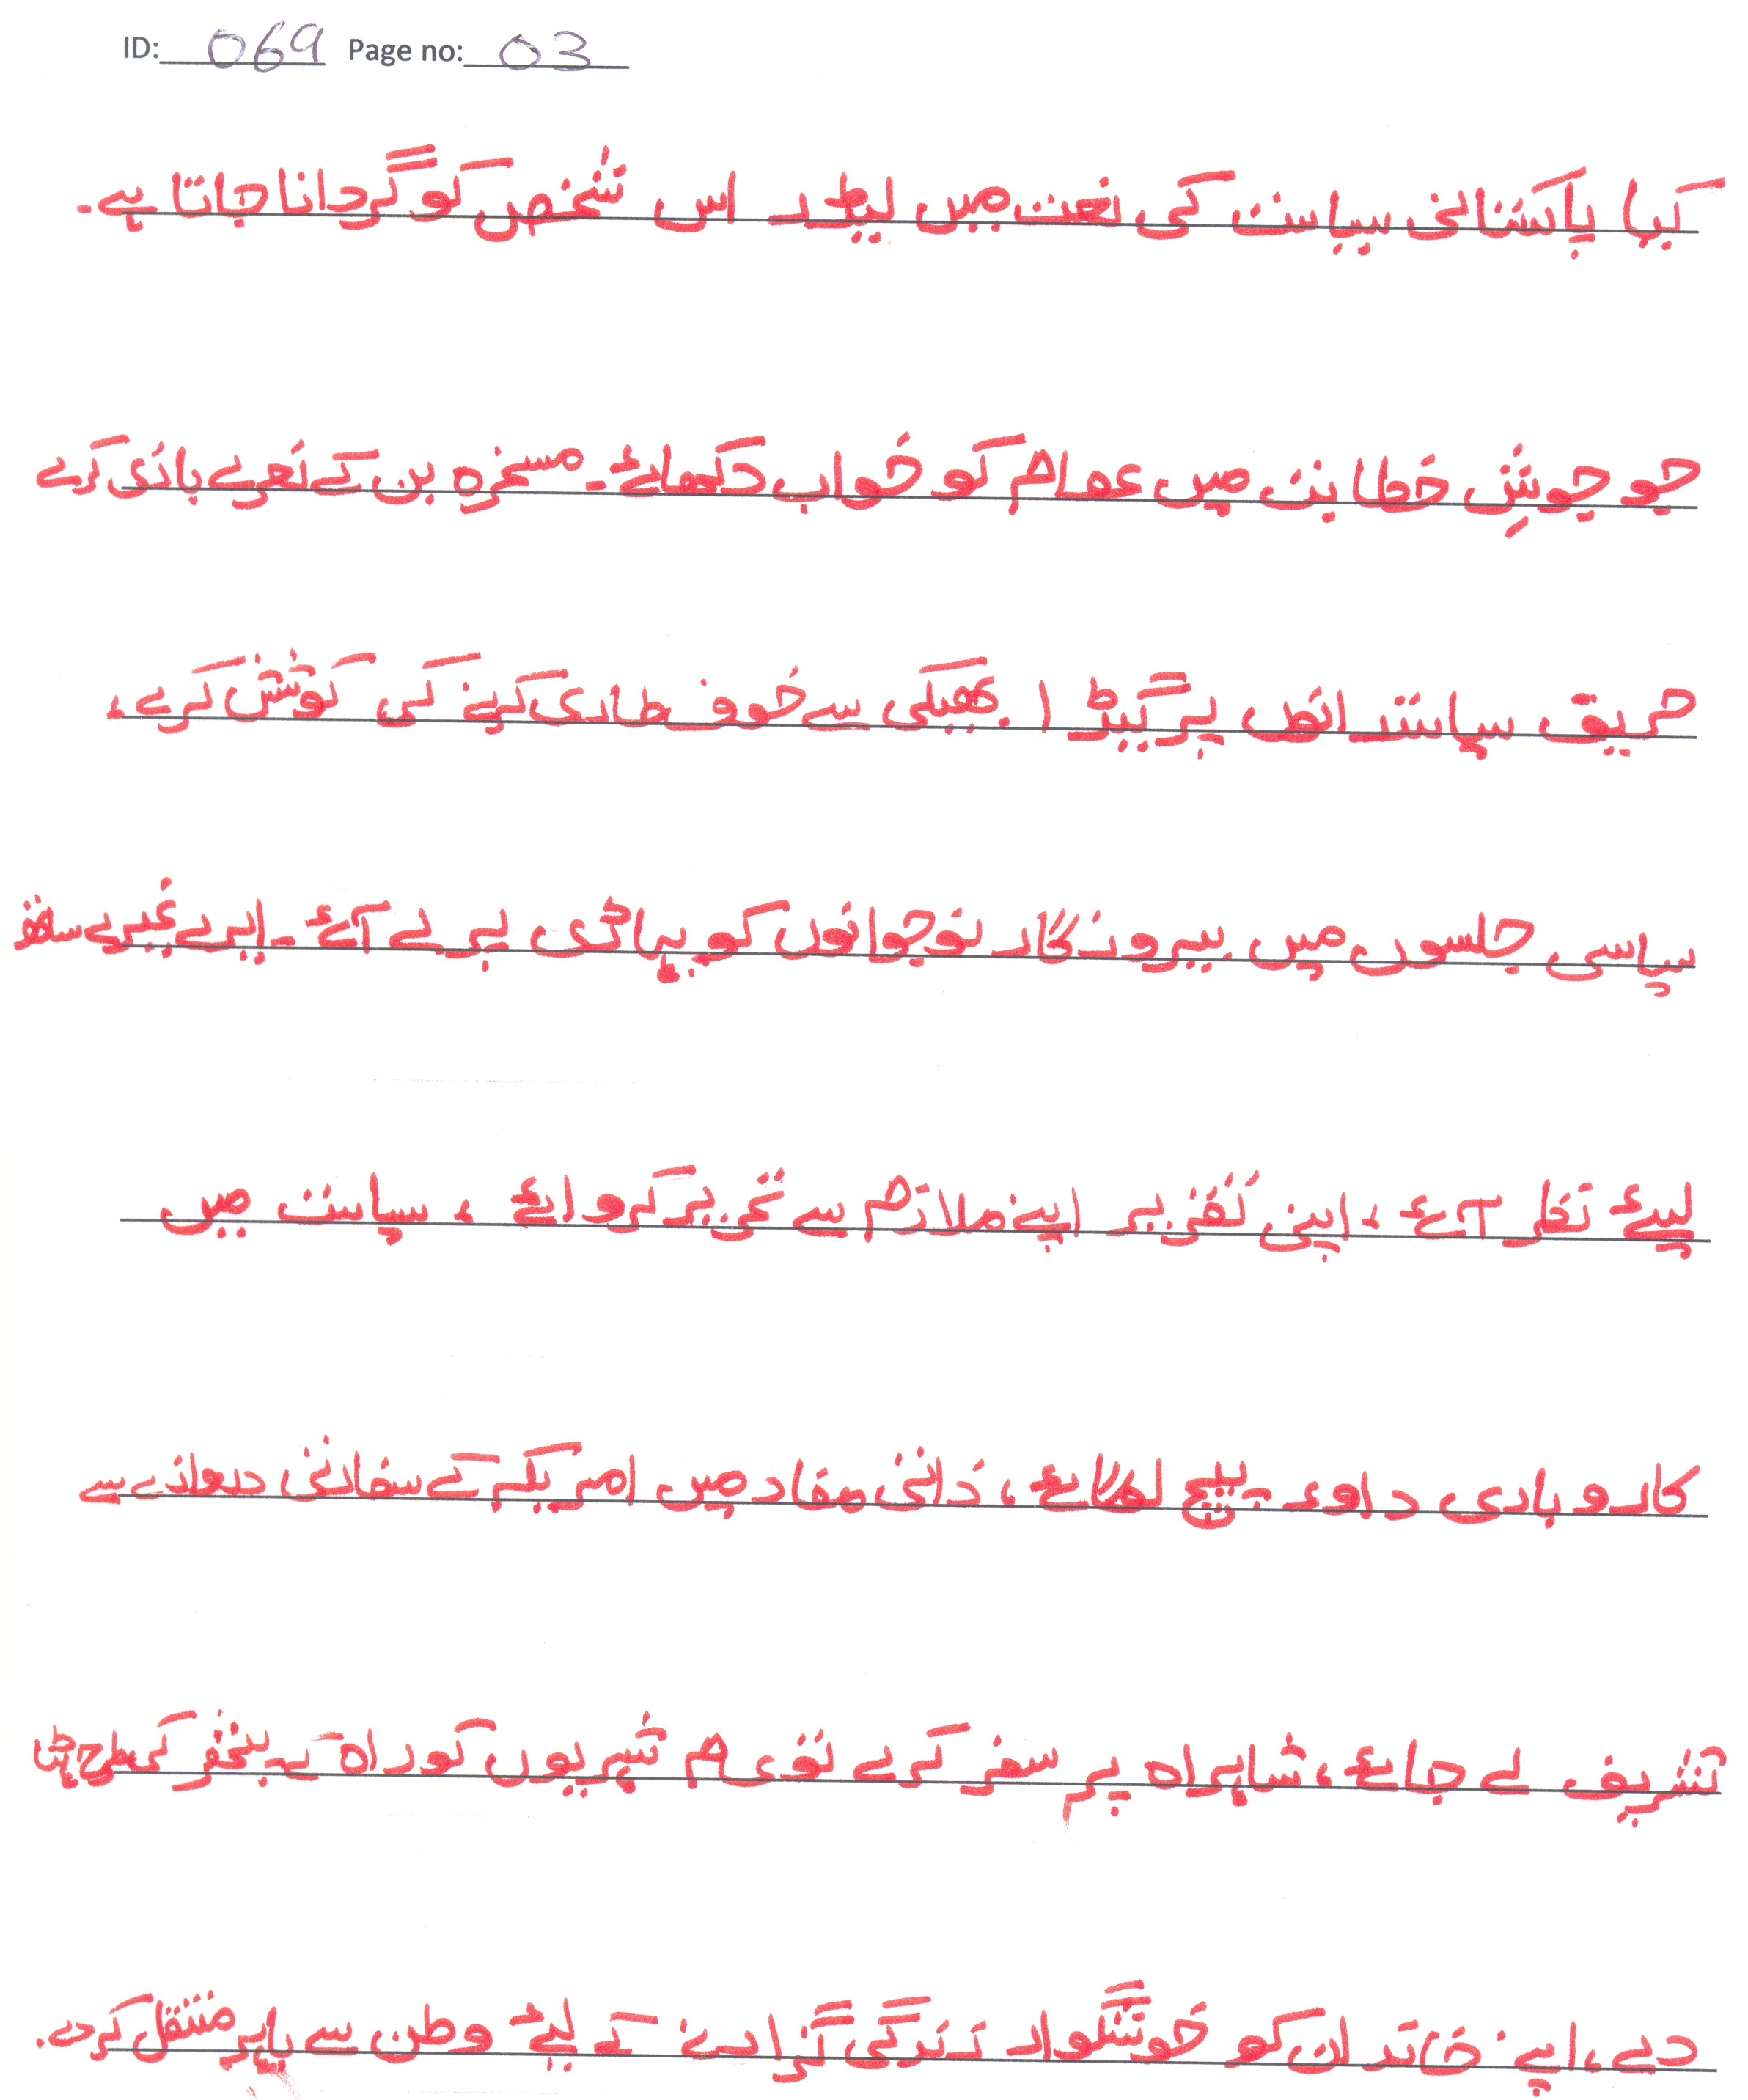 ID: 069 Page no: 03
کیا پاکستانی سیاست کی لغت میں لیڈر اس شخص کو گردانا جاتا ہے۔
جو جوشِ خطابت میں عوام کو خواب دکھائے۔ مسخرہ بن کے نعرے بازی کرے
حریف سیاستدانوں پر گیڈر بھبکی سے خوف طاری کرنے کی کوشش کرے،
سیاسی جلسوں میں بیروزگار نوجوانوں کو دیہاڑی پر لے آئے۔ ایرے غیرے ساتھ
لیئے نظر آئے، اپنی تقریر اپنے ملازم سے تحریر کروائے، سیاست میں
کاروباری داوء پیچ لگائے، ذاتی مفاد میں امریکہ کے سفارتی دروازے سے
تشریف لے جائے، شاہراہ پر سفر کرے تو عام شہریوں کو راہ کے پتھر کی طرح ہٹا
دے، اپنے خاندان کو خوشگوار زندگی گزارنے کے لیئے وطن سے باہر منتقل کردے۔